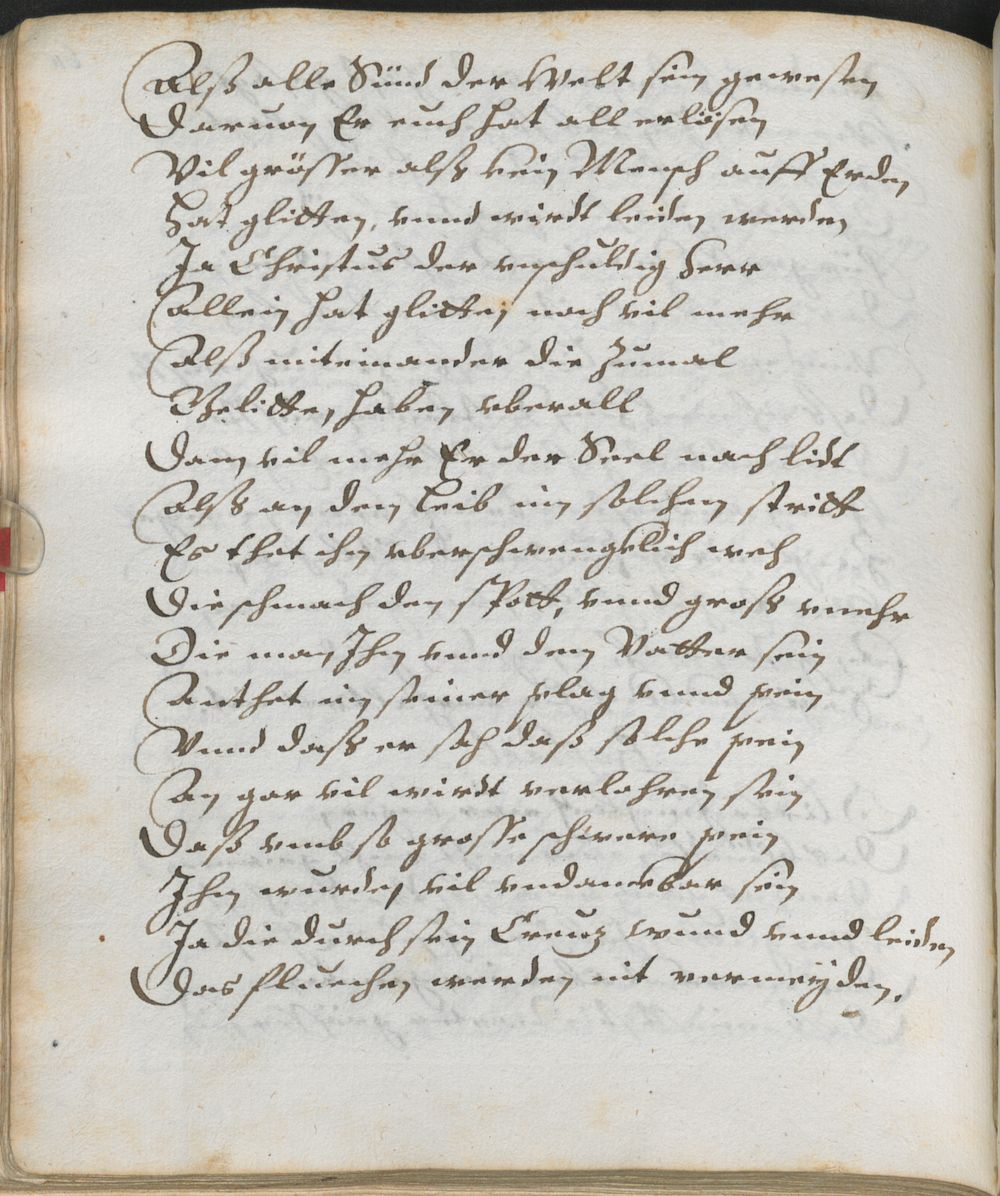 Alß alle Sünd der Welt sein gewesen
Daruon Er euch hat all erlösen
Vil grösser alß kein Mensch auff Erden
Hat glitten, vnnd wirdt leiden werden
Ja Christus der vnschuldig Herr
Allein hat glitten noch vil mehr
Alß miteinander die zumal
Gelitten haben vberall
Dann vil mehr Er der Seel nach lidt
Alß an dem Leib inn solchem stritt
Es thet ihm vberschwengklich weh
Die schmach den spott, vnnd groß vnehr
Die man Ihm vnnd dem Vatter sein
Anthet inn seiner plag vnnd pein
Vnnd daß er sah daß solche pein
An gar vil wirdt verlohren sein
Daß vmb so grosse schwere pein
Ihm wurden vil vndanckbar sein
Ja die durch sein Creuz wund vnnd leiden
Das fluechen werden nit vermeyden.